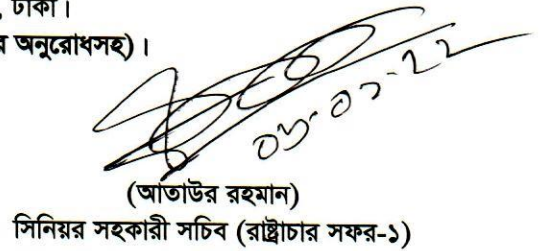 , ঢাকা।
র অনুরোধসহ)।
(আতাউর রহমান)
সিনিয়র সহকারী সচিব (রাষ্ট্রাচার সফর-১)